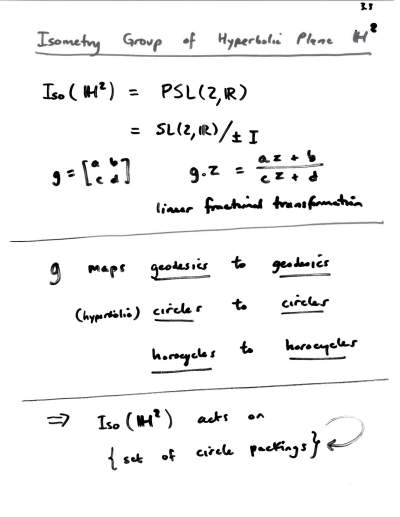 3.3
Isometry Group of Hyperbolic Plane ℍ²
Iso(ℍ²) = PSL(2,ℝ)
= SL(2,ℝ)/± I
g = [a b c d] g.z = az + b / cz + d
linear fractional transformation
g maps geodesics to geodesics
(hyperbolic) circles to circles
horocycles to horocycles
⇒ Iso(ℍ²) acts on
{set of circle packings}